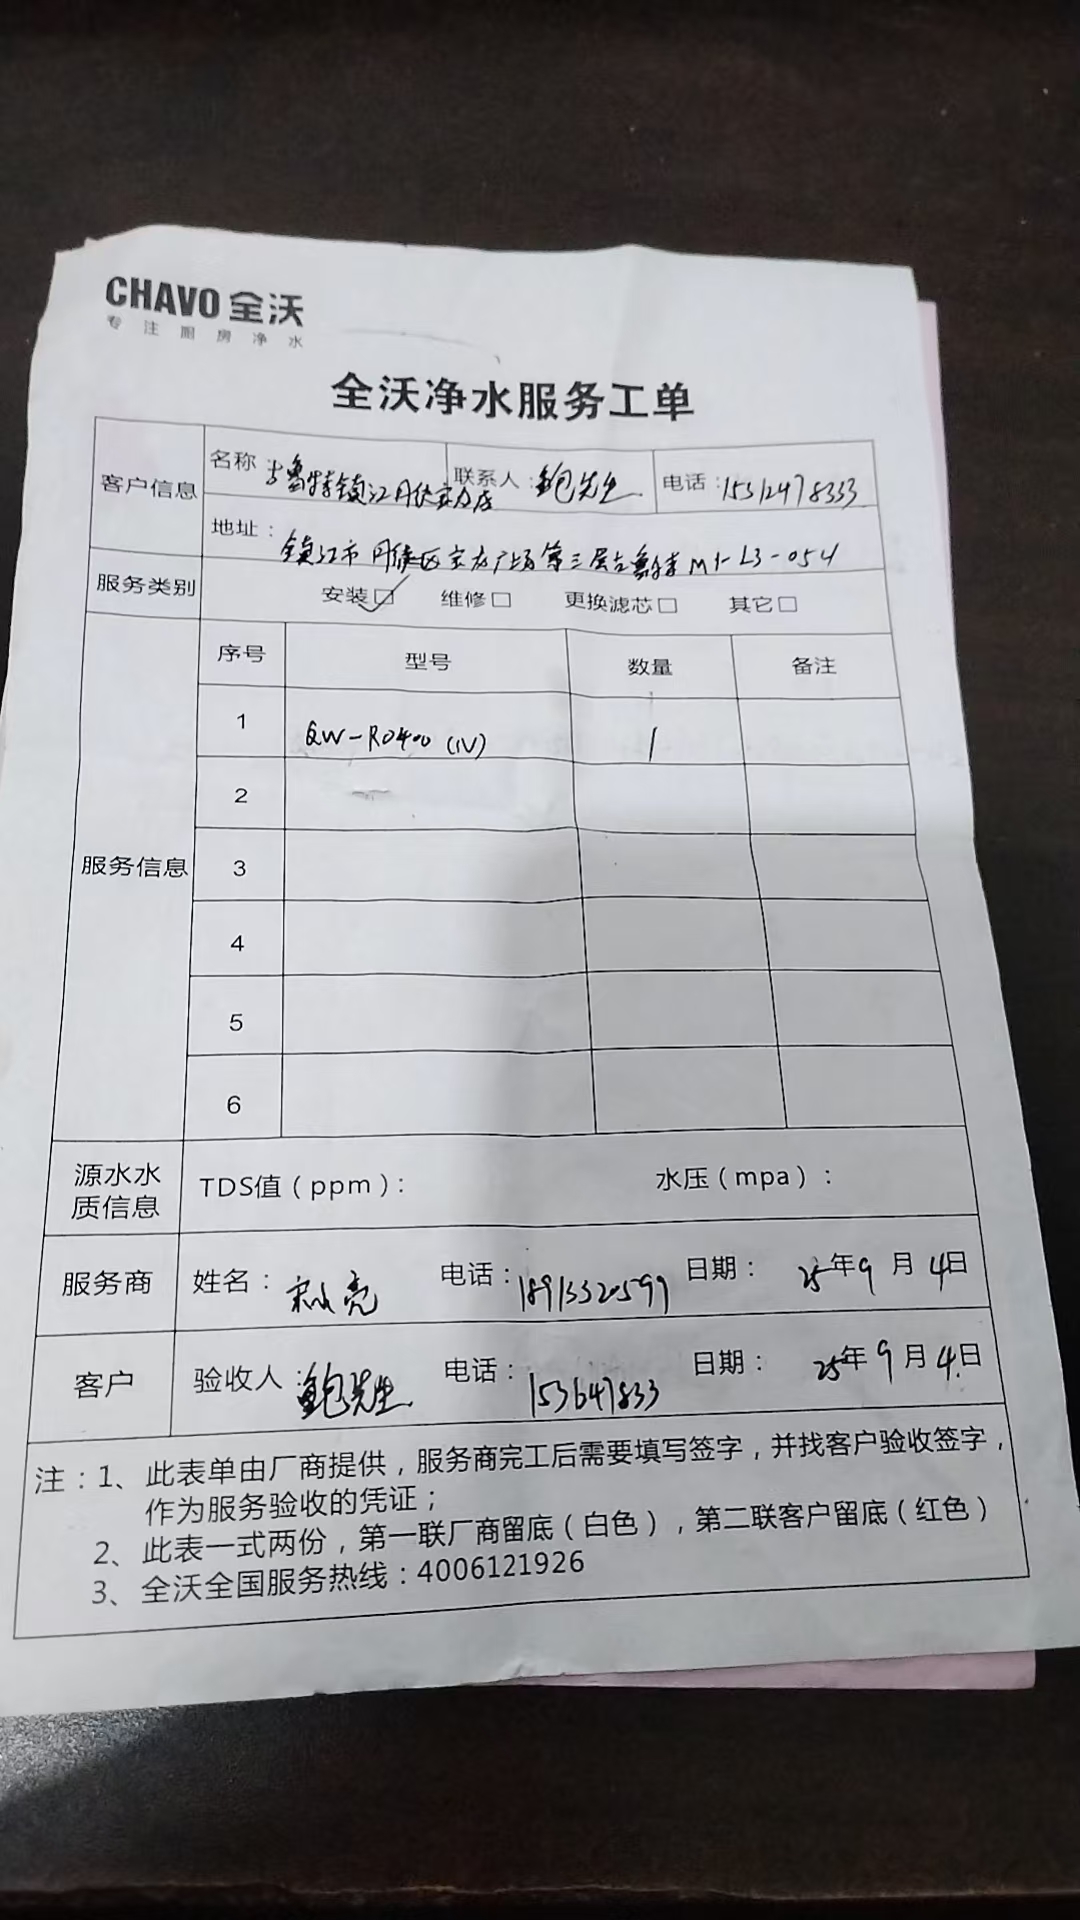 CHAVO 全沃
专注厨房净水
全沃净水服务工单
客户信息 名称：古鲁特镇江丹徒宝龙店 联系人：鲍先生 电话：15312478333
地址：镇江市丹徒区宝龙广场第三层古鲁特 M1-L3-054
服务类别 安装☑ 维修□ 更换滤芯□ 其它□
服务信息 序号 型号 数量 备注
1 QW-RO400 (IV) 1
2
3
4
5
6
源水水质信息 TDS值（ppm）： 水压（mpa）：
服务商 姓名： 亮 电话：18913320599 日期：25年9月4日
客户 验收人：鲍先生 电话：153647833 日期：25年9月4日
注：1、此表单由厂商提供，服务商完工后需要填写签字，并找客户验收签字，
作为服务验收的凭证；
2、此表一式两份，第一联厂商留底（白色），第二联客户留底（红色）
3、全沃全国服务热线：4006121926